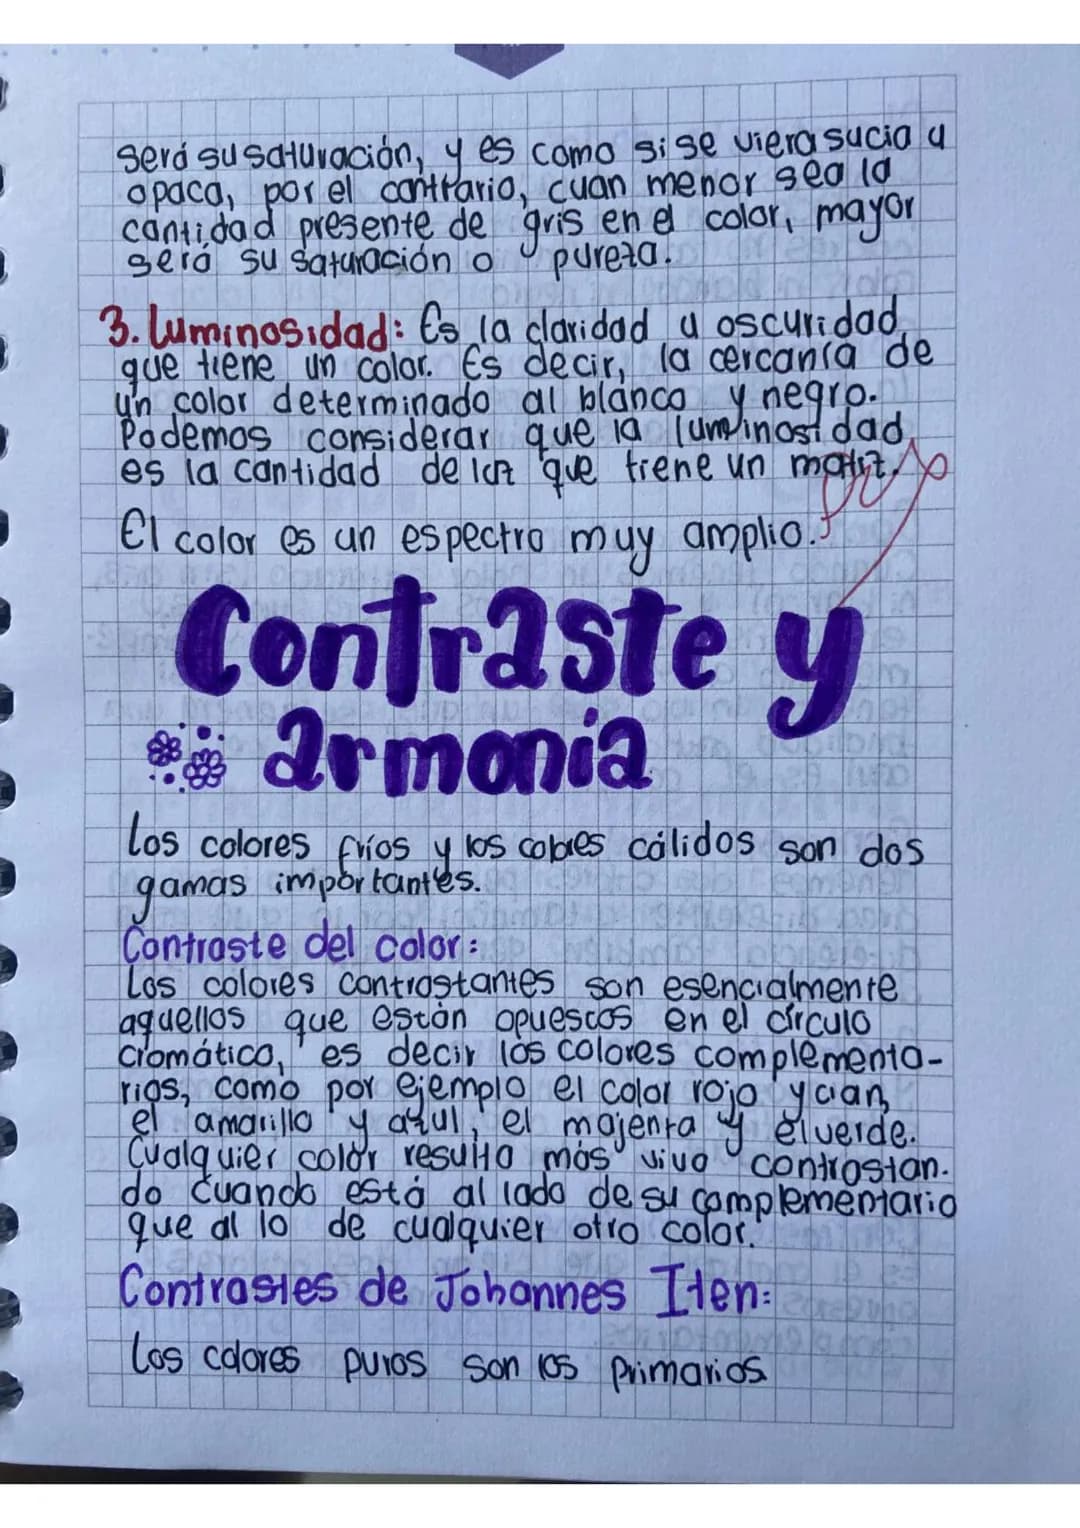 será su saturación, y es como si se viera sucia u
opaca, por el contrario, cuan menor sea la
cantidad presente de gris en el color, mayor
será su saturación o pureza.
3. Luminosidad: Es la claridad u oscuridad
que tiene un color. Es decir, la cercanía de
un color determinado al blanco y negro.
Podemos considerar que la luminosidad
es la cantidad de luz que tiene un matiz.
El color es un espectro muy amplio.
Contraste y
armonía
Los colores fríos y los colores cálidos son dos
gamas importantes.
Contraste del color:
Los colores contrastantes son esencialmente
aquellos que están opuestos en el círculo
cromático, es decir los colores complementa-
rios, como por ejemplo el color rojo y cian,
el amarillo y azul, el majenta y el verde.
Cualquier color resulta más vivo contrastan-
do cuando está al lado de su complementario
que al lo de cualquier otro color.
Contrastes de Johannes Iten:
Los colores puros son los primarios